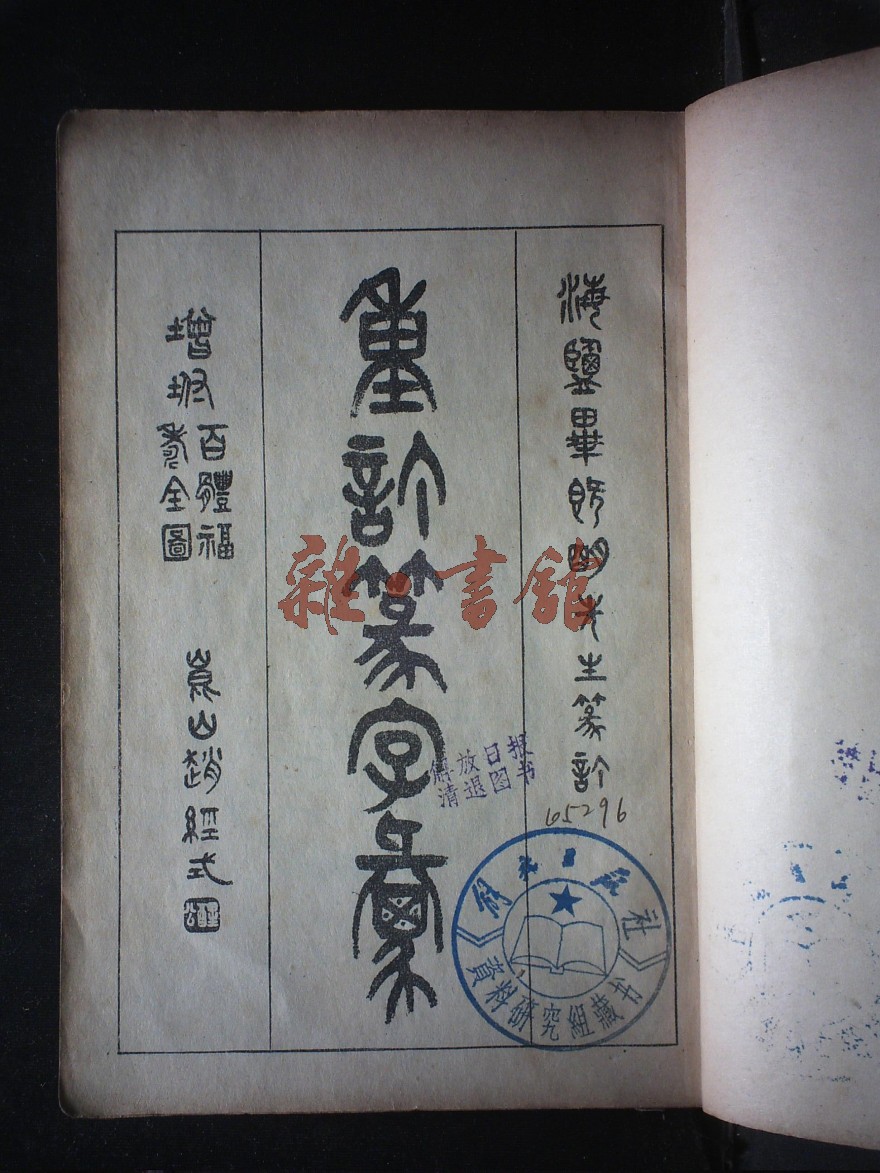 海鹽畢既明先生篆訂
重訂篆字彙
增坿
百體福
壽全圖
崑山趙經式
雜·書館
解放日报
清退图书
65296
《解放日报》社
資料研究組藏书